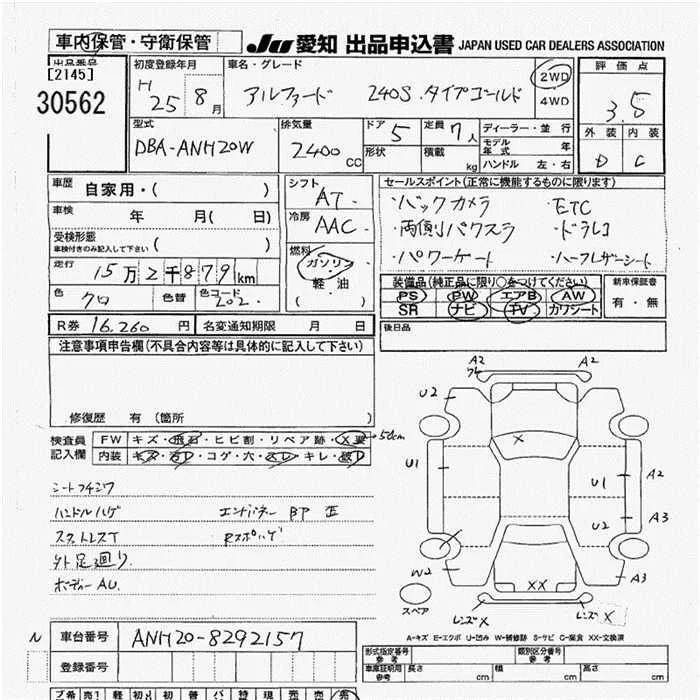 車内保管・守衛保管
JU 愛知 出品申込書 JAPAN USED CAR DEALERS ASSOCIATION
出品番号
[2145]
30562
初度登録年月
H 25 8月
車名・グレード
アルファード 240S.タイプゴールド
2WD
4WD
評価点
3.5
外装 内装
D C
型式
DBA-ANH20W
排気量
2400 CC
ドア 5
形状
定員 7人
積載 kg
ディーラー・並行
モデル年式 年
ハンドル 左・右
車歴
自家用・( )
車検 年 月( 日)
受検形態
車検付きのみ記入して下さい ( )
走行 15万2千879km
色 クロ 色替 色コード 202.
シフト AT.
冷房 AAC.
燃料
ガソリン
軽油
( )
セールスポイント(正常に機能するものに限ります)
・バックカメラ ・ETC
・両側パワスラ ・ドラレコ
・パワーゲート ・ハーフレザーシート
装備品(純正品に限り○をつけてください)
PS PW エアB AW
SR ナビ TV カワシート
新車保証書
有・無
R券 16,260 円 名変通知期限 月 日
後日品
注意事項申告欄(不具合内容等は具体的に記入して下さい)
修復歴 有 (箇所 )
検査員記入欄
FW キズ・飛石・ヒビ割・リペア跡・X要 50cm
内装 キズ・汚レ・コゲ・穴・スレ・キレ・破レ
シートフチシワ
ハンドルハゲ エンブレム
外足廻り
ボディーAU.
A2 A2
U2
X
U1 U1 A2
U2 A3
W2 XX A3
スペア
レンズX レンズX
A-キズ E-エクボ U-凹み W-補修跡 S-サビ C-腐食 XX-交換済
車台番号 ANH20-8292157
登録番号
形式指定番号 参考
類別区分番号 参考
車庫証明用 参考 長さ cm 幅 cm 高さ cm